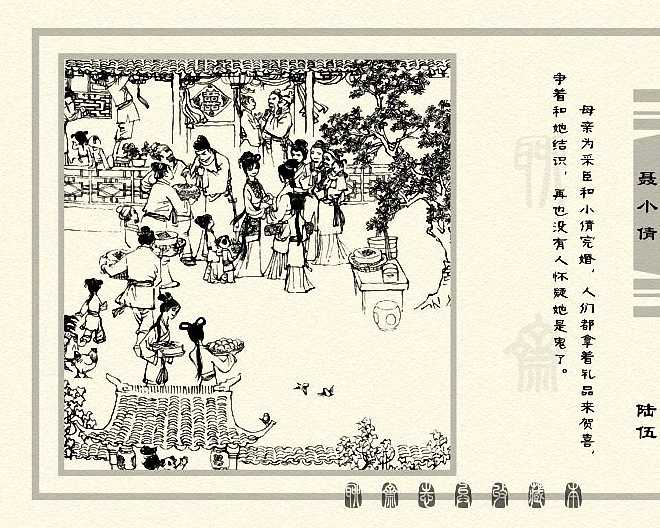 母亲为采臣和小倩完婚，人们都拿着礼品来贺喜，
争着和她结识，再也没有人怀疑她是鬼了。
聂小倩
陆伍
聊斋志异收藏本
聊斋
囍